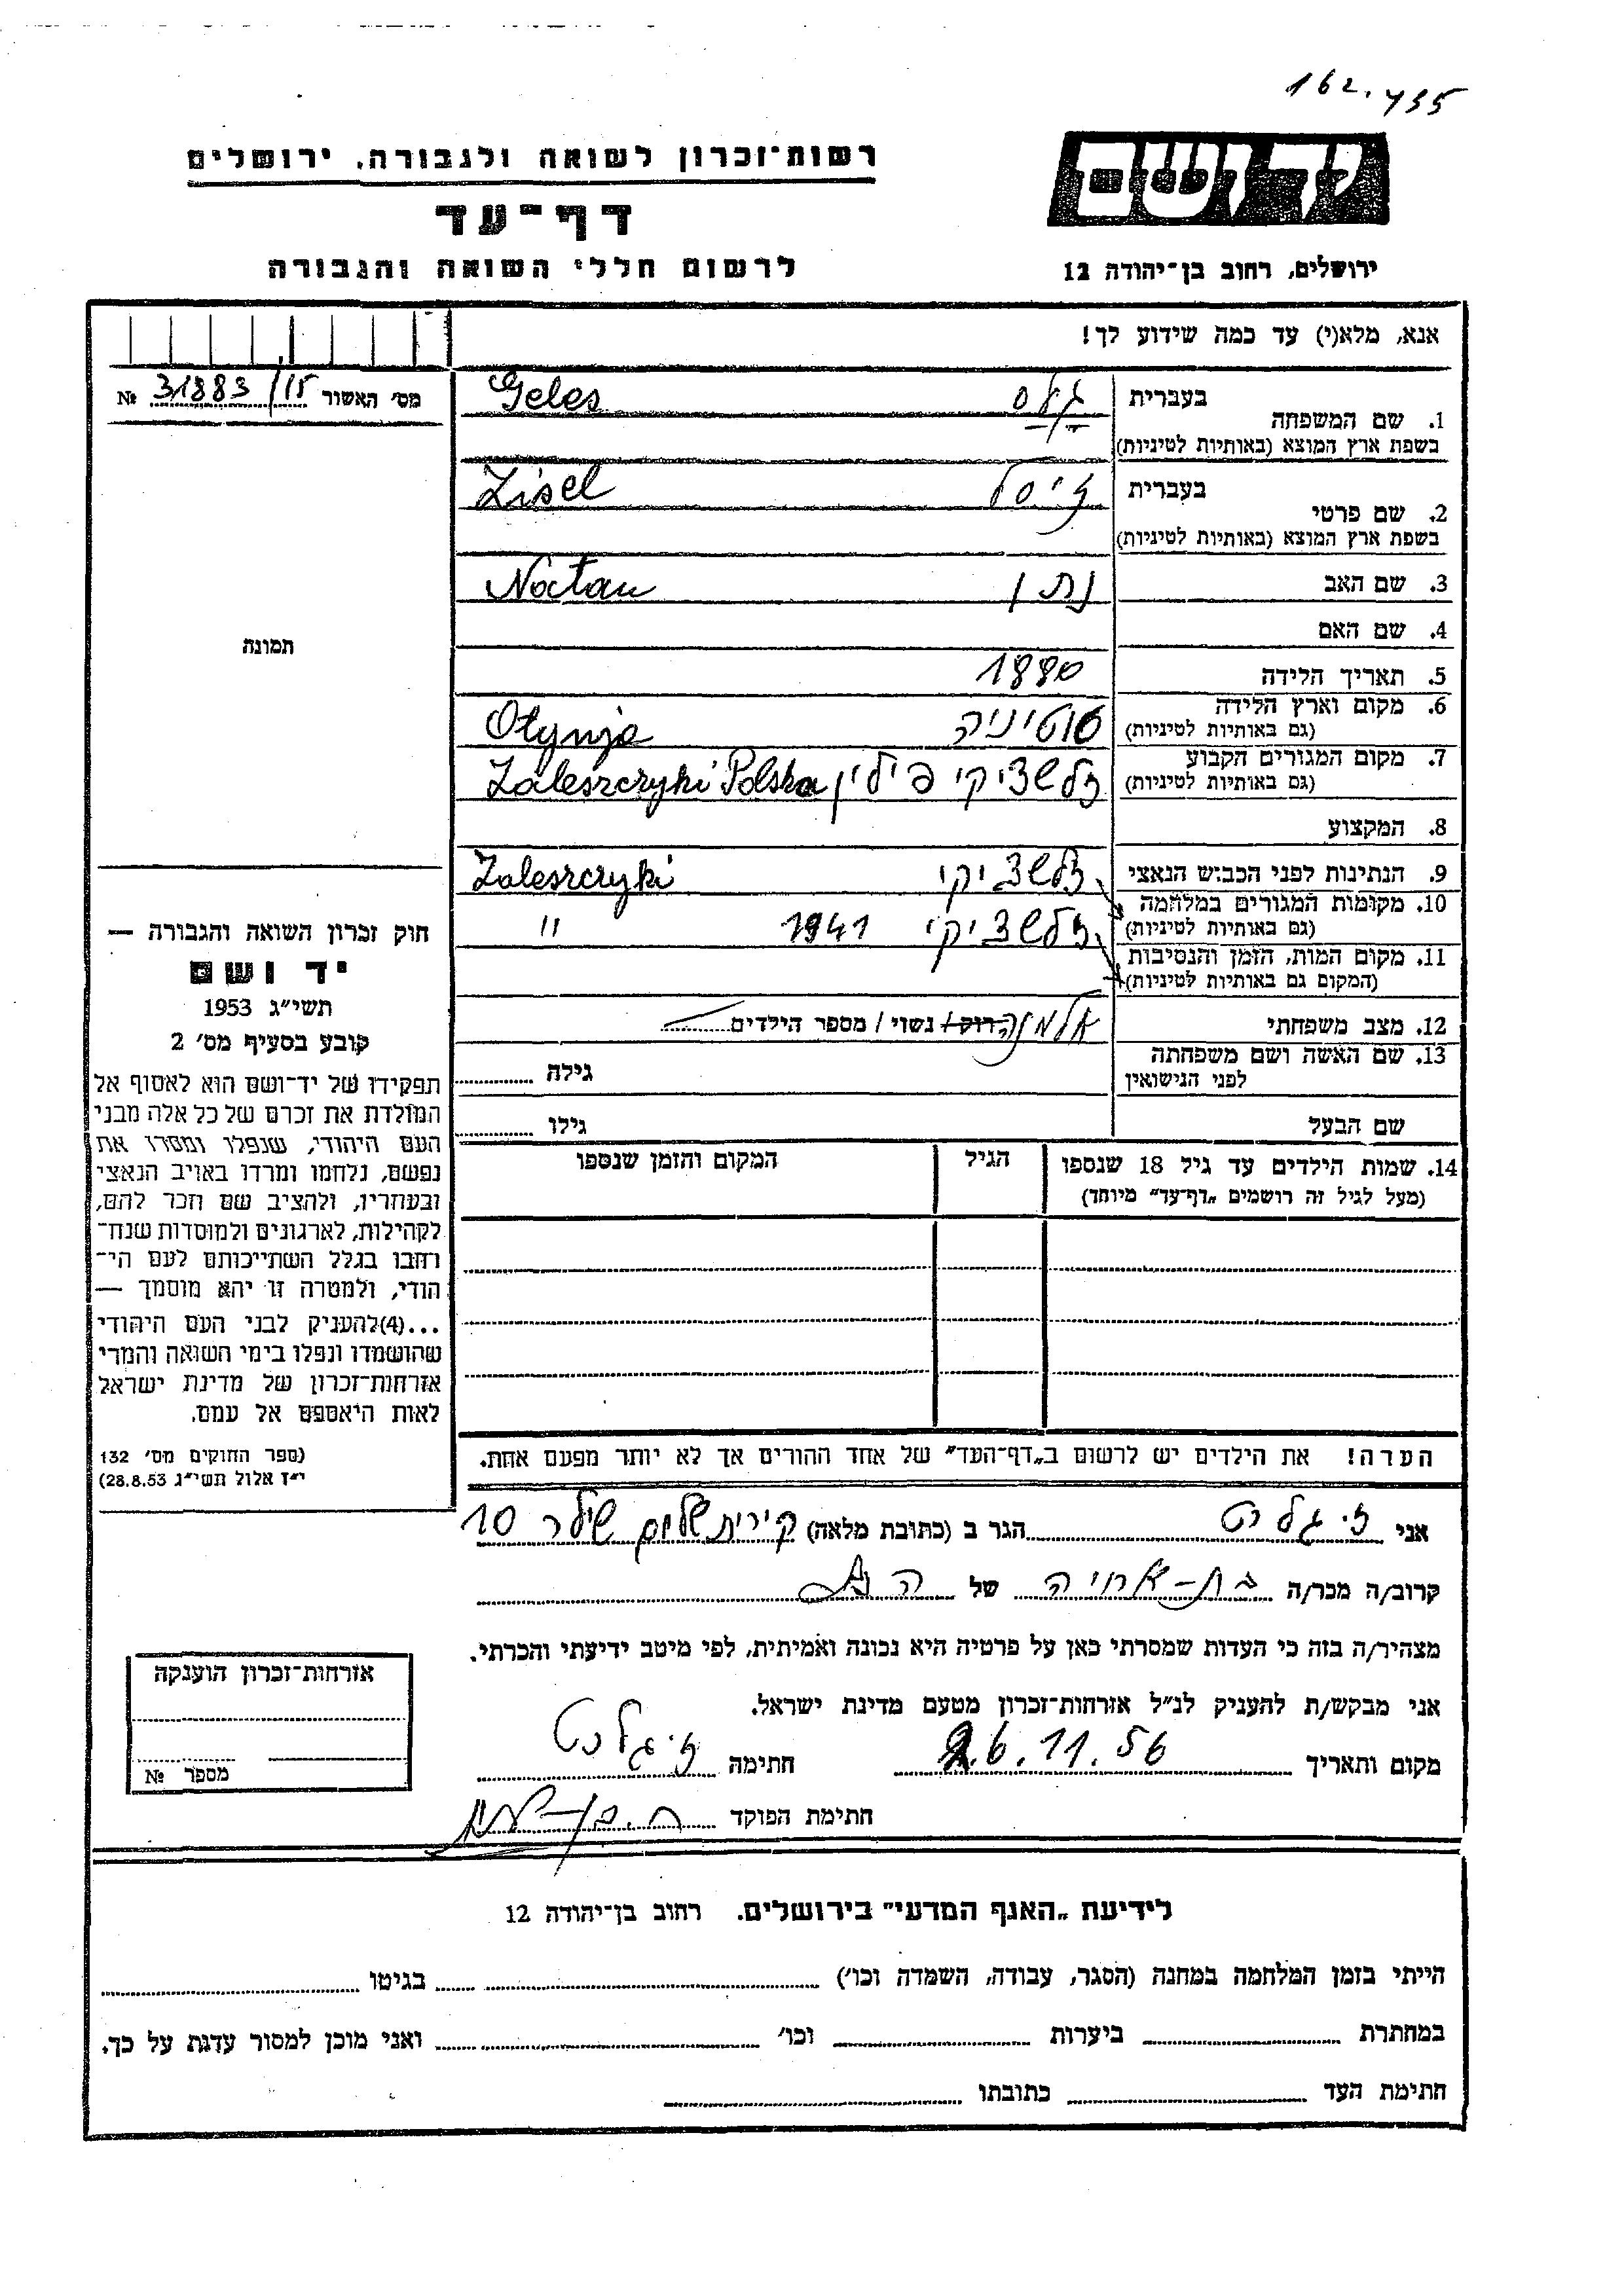 162.435
רשות־זכרון לשואה ולגבורה, ירושלים
יד ושם
דף־עד
לרשום חללי השואה והגבורה
ירושלים, רחוב בן־יהודה 12
אנא, מלא(י) עד כמה שידוע לך!
מס׳ האשור № 31883/15
1. שם המשפחה
בעברית
גלס Geles
בשפת ארץ המוצא (באותיות לטיניות)
2. שם פרטי
בעברית
זיסל Zisel
בשפת ארץ המוצא (באותיות לטיניות)
3. שם האב נתן Natan
4. שם האם
תמונה
5. תאריך הלידה 1880
6. מקום וארץ הלידה Otynja
(גם באותיות לטיניות)
7. מקום המגורים הקבוע זלשציקי פולין Zaleszczyki Polska
(גם באותיות לטיניות)
8. המקצוע
9. הנתינות לפני הכבוש הנאצי
זלשציקי Zaleszczyki
10. מקומות המגורים במלחמה
(גם באותיות לטיניות)
זלשציקי 1941 "
11. מקום המות, הזמן והנסיבות
(המקום גם באותיות לטיניות)
12. מצב משפחתי אלמנה רווק / נשוי / מספר הילדים
13. שם האשה ושם משפחתה
לפני הנישואין
גילה
שם הבעל גילו
14. שמות הילדים עד גיל 18 שנספו הגיל המקום והזמן שנספו
(מעל לגיל זה רושמים „דף־עד” מיוחד)
חוק זכרון השואה והגבורה —
יד ושם
תשי״ג 1953
קובע בסעיף מס׳ 2
תפקידו של יד־ושם הוא לאסוף אל
המולדת את זכרם של כל אלה מבני
העם היהודי, שנפלו ומסרו את
נפשם, נלחמו ומרדו באויב הנאצי
ובעוזריו, ולהציב שם וזכר להם,
לקהילות, לארגונים ולמוסדות שנח־
רבו בגלל השתייכותם לעם הי־
הודי, ולמטרה זו יהא מוסמך —
...(4)להעניק לבני העם היהודי
שהושמדו ונפלו בימי השואה והמרי
אזרחות־זכרון של מדינת ישראל
לאות היאספם אל עמם.
(ספר החוקים מס׳ 132
י״ז אלול תשי״ג 28.8.53)
הערה! את הילדים יש לרשום ב„דף־העד” של אחד ההורים אך לא יותר מפעם אחת.
אני הגר ב (כתובת מלאה) קירית שלום שילר 10
קרוב/ה מכר/ה בת-אחיה של
מצהיר/ה בזה כי העדות שמסרתי כאן על פרטיה היא נכונה ואמיתית, לפי מיטב ידיעתי והכרתי.
אני מבקש/ת להעניק לנ״ל אזרחות־זכרון מטעם מדינת ישראל.
מקום ותאריך 26.11.56 חתימה
חתימת הפוקד
אזרחות־זכרון הוענקה
מספר №
לידיעת „האגף המדעי” בירושלים. רחוב בן־יהודה 12
הייתי בזמן המלחמה במחנה (הסגר, עבודה, השמדה וכו׳) בגיטו
במחתרת ביערות וכו׳ ואני מוכן למסור עדות על כך.
חתימת העד כתובתו